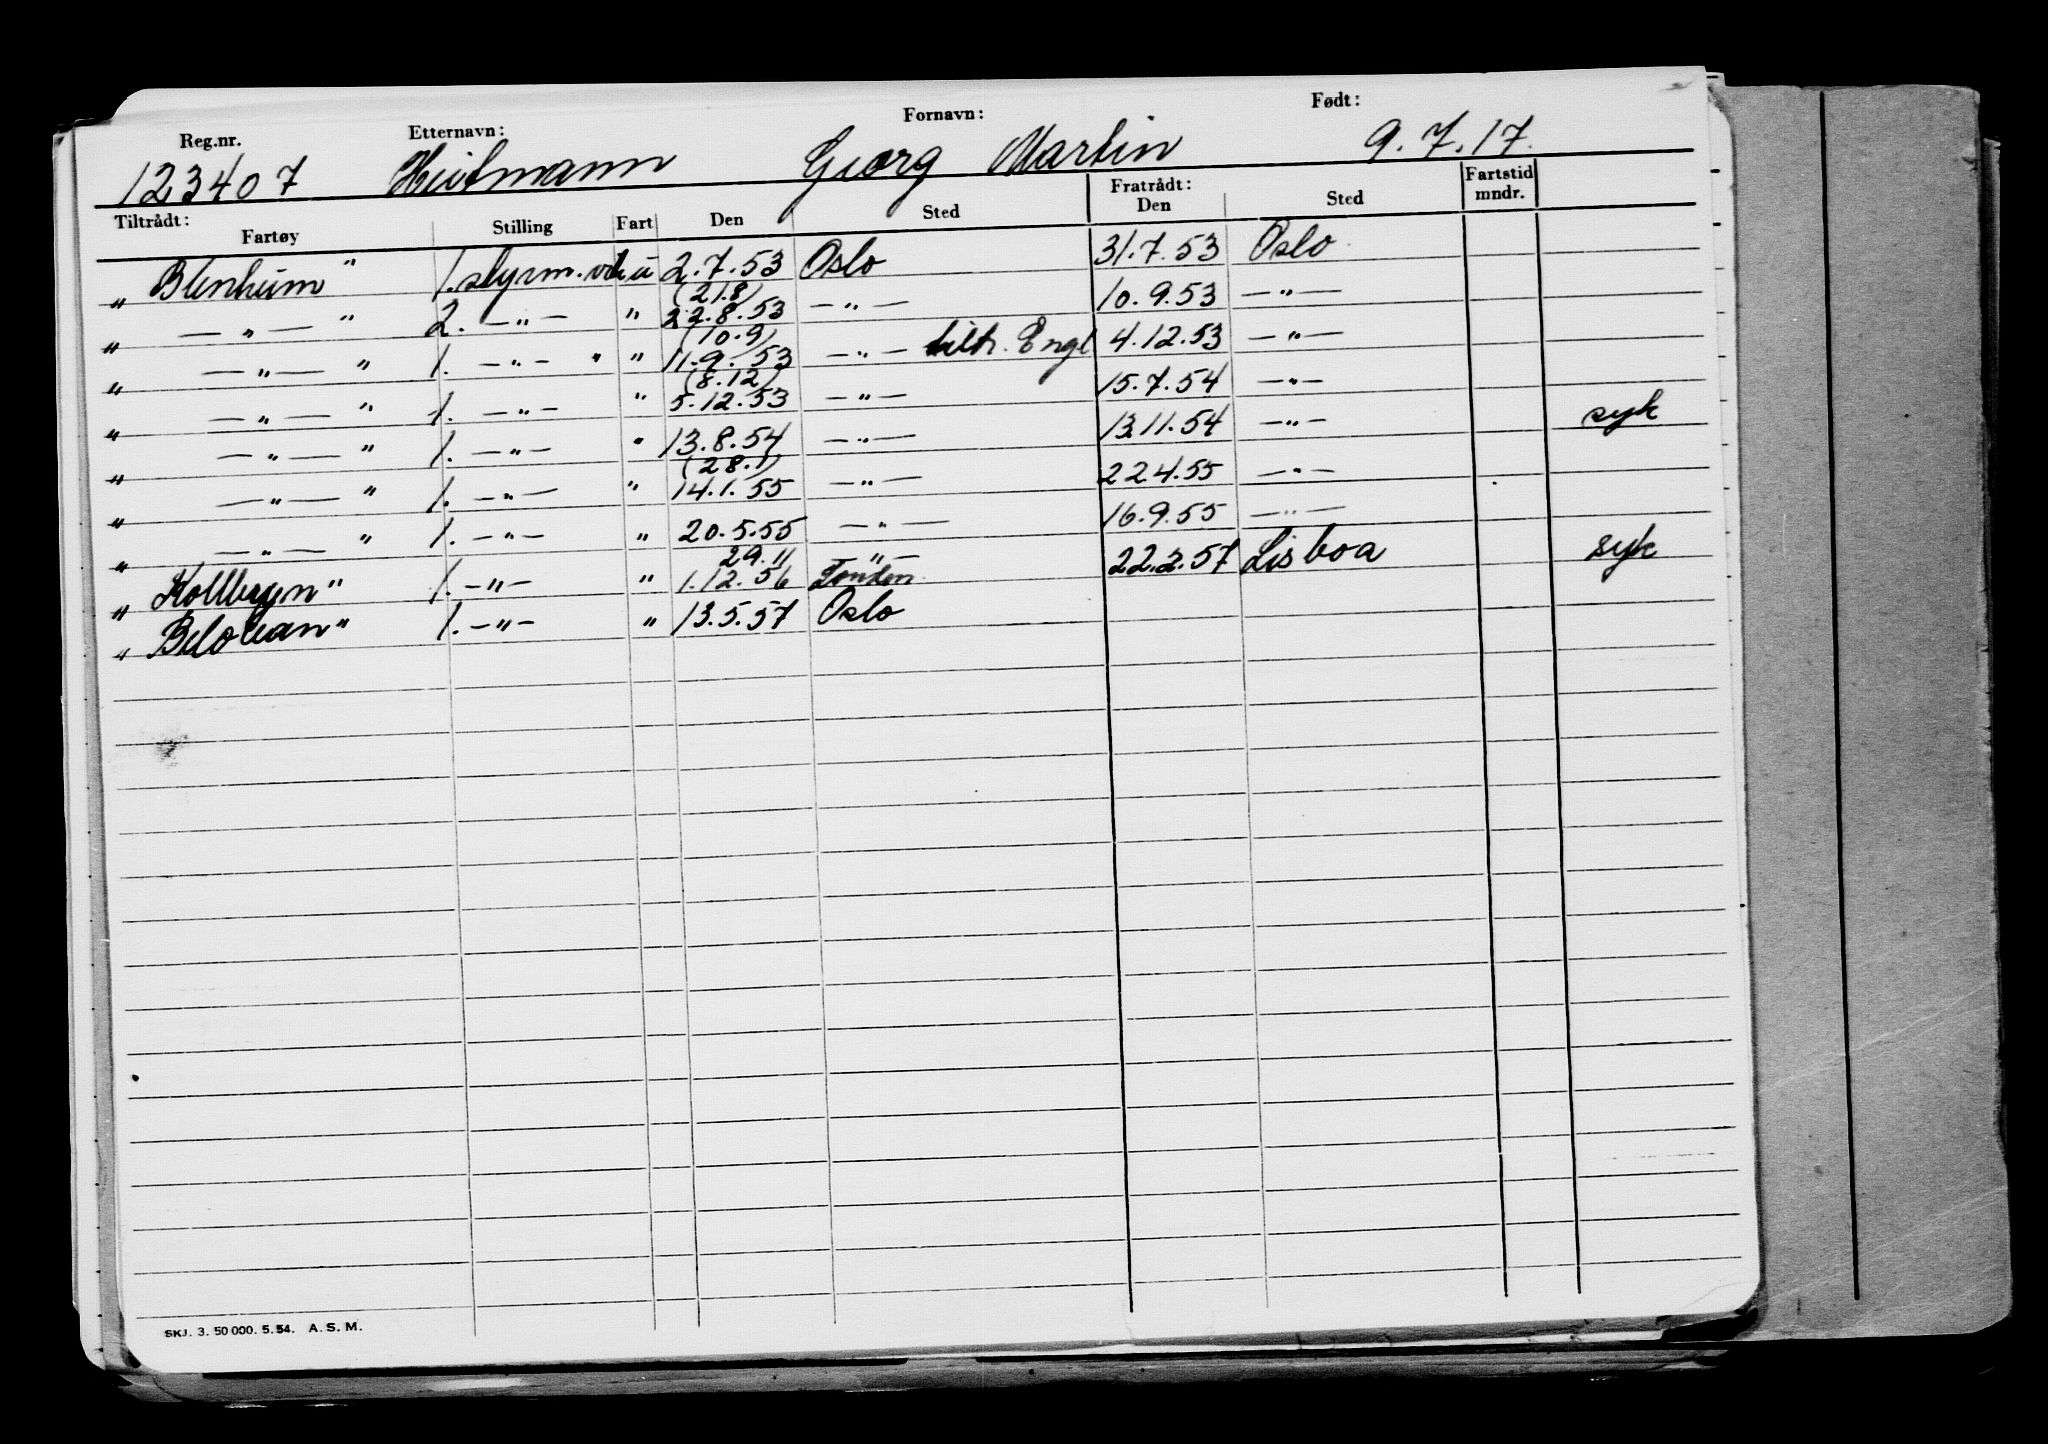 Reg.nr. Etternavn: Fornavn: Født:
123407 Heitmann Georg Martin 9.7.17.
Tiltrådt: Fratrådt: Fartstid mndr.
Fartøy Stilling Fart Den Sted Den Sted
" Blenheim " 1. styrm. u 2.7.53 Oslo 31.7.53 Oslo
(21.8)
" — " — " 2. — " — " 22.8.53 — " — 10.9.53 — " —
(10.9)
" — " — " 1. — " — " " 11.9.53 — " — tiltr. Engl 4.12.53 — " —
(8.12)
" — " — " 1. — " — " 5.12.53 — " — 15.7.54 — " —
" — " — " 1. — " — " 13.8.54 — " — 13.11.54 — " — syk
(28.1)
" — " — " 1. — " — " 14.1.55 — " — 22.4.55 — " —
" — " — " 1. — " — " 20.5.55 — " — 16.9.55 — " —
29.11 — " —
" Kollbryn " 1. — " — " 1.12.56 22.2.57 Lisboa syk
" Belocean " 1. — " — " 13.5.57 Oslo
SKJ. 3. 50 000. 5. 54. A. S. M.